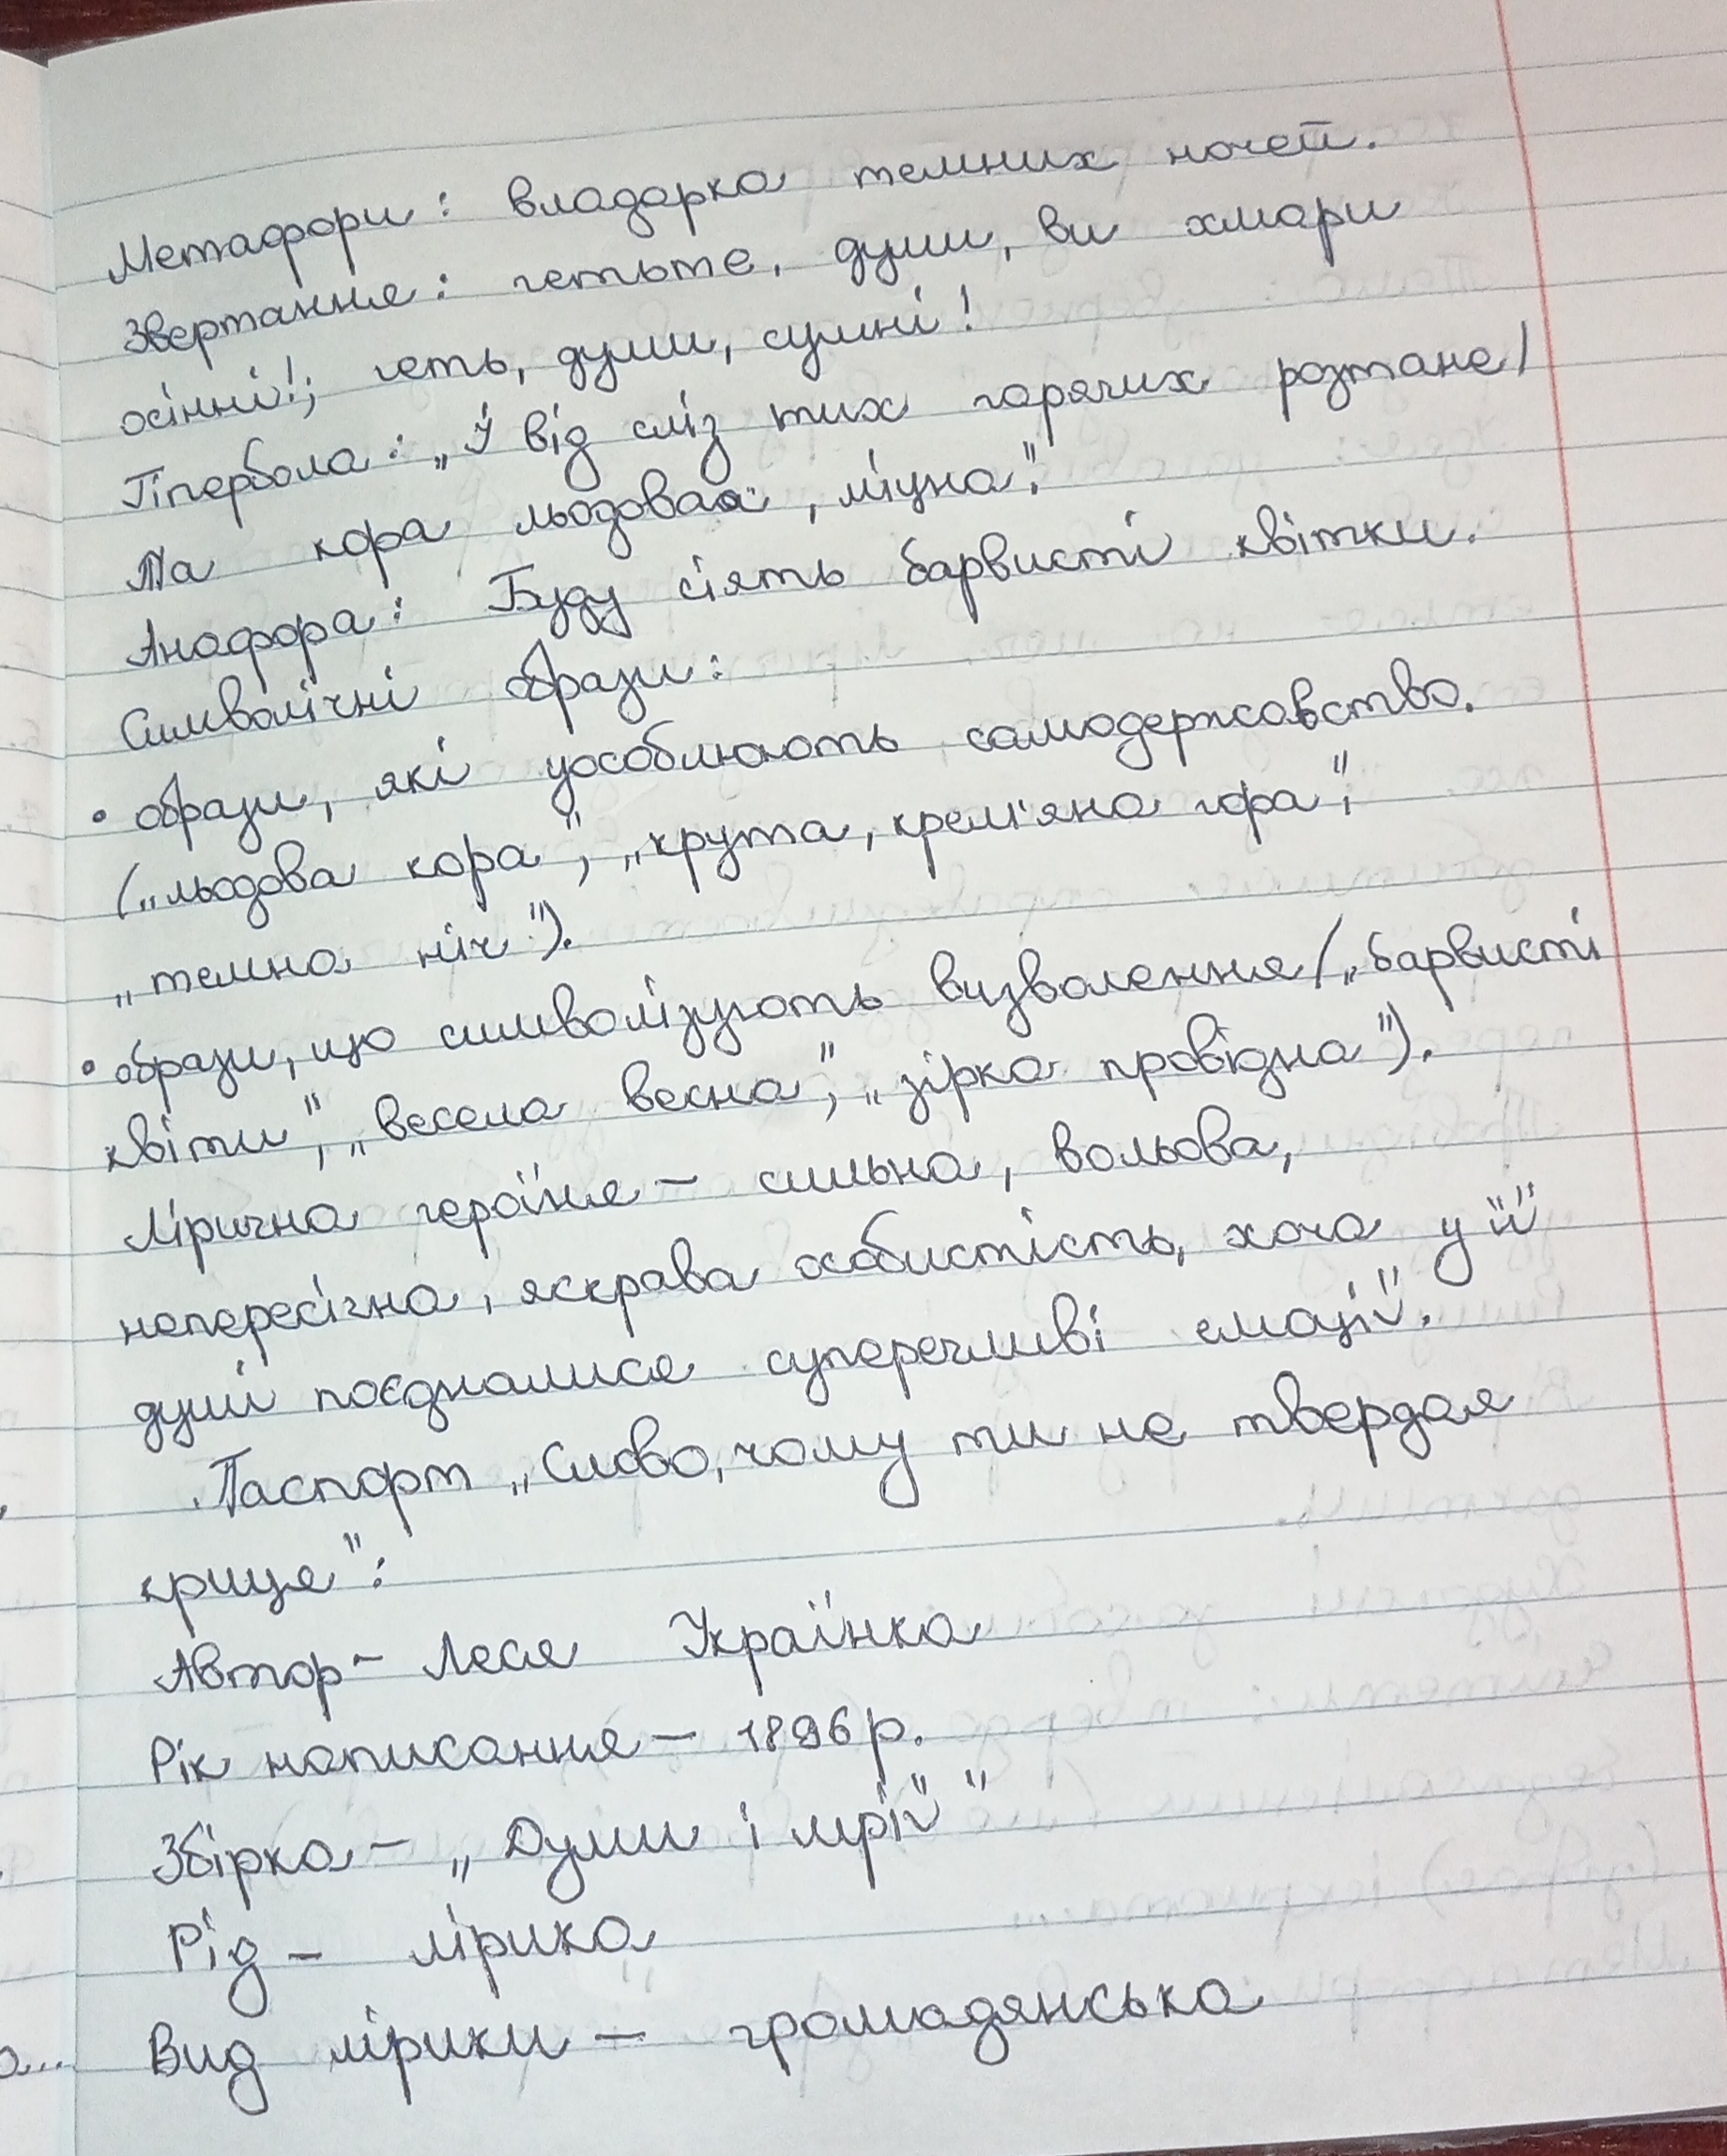 Метафори: владарка темних ночей.
Звертання: гетьте, думи, ви хмари
осінні!; геть, думи, сумні!
Гіпербола: „І від сліз тих горячих розтане/
Та кора льодовая, міцна".
Анафора: Буду сіять барвисті квітки.
Символічні образи:
• образи, які уособлюють самодержавство.
(„льодова кора", „крута, крем'яна гора",
„темна ніч").
• образи, що символізують визволення („барвисті
квіти", „весела весна", „зірка провідна").
Лірична героїня – сильна, вольова,
непересічна, яскрава особистість, хоча у її
душі поєдналися суперечливі емоції.
Паспорт „Слово, чому ти не твердая
криця":
Автор – Леся Українка
Рік написання – 1896 р.
Збірка – „Думи і мрії"
Рід – лірика
Вид лірики – громадянська